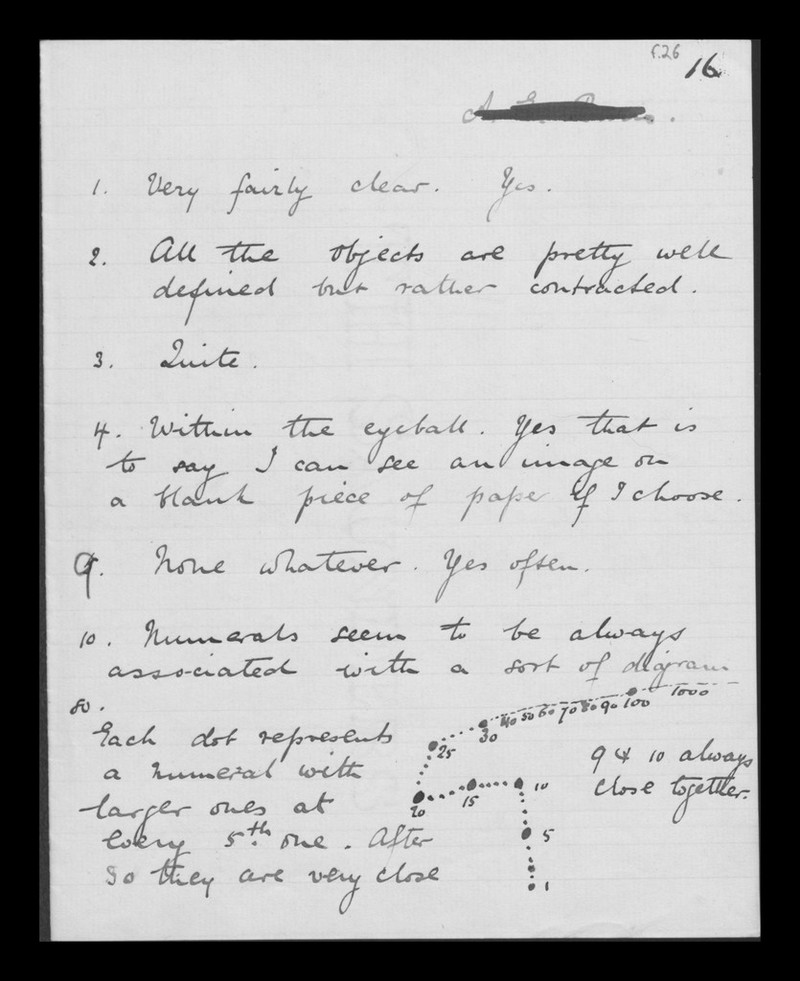 f.26
16
1. Very fairly clear. Yes.
2. All the objects are pretty well
defined but rather contracted.
3. Quite.
4. Within the eyeball. Yes that is
to say I can see an image on
a blank piece of paper if I choose.
9. None whatever. Yes often.
10. Numerals seem to be always
associated with a sort of digram
so.
Each dot represents
a numeral with
larger ones at
every 5th one. After
30 they are very close
1000
100
90
80
70
60
50
40
30
25
20
15
10
5
1
9 & 10 always
close together.